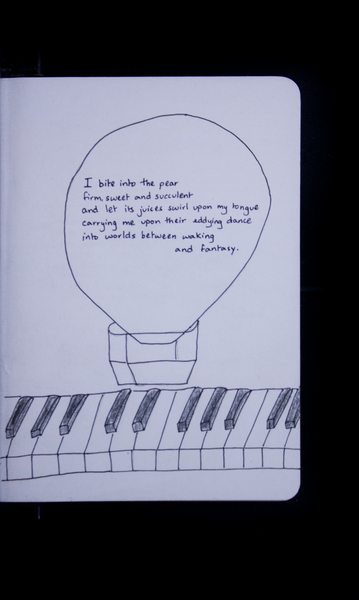 I bite into the pear
firm, sweet and succulent
and let its juices swirl upon my tongue
carrying me upon their eddying dance
into worlds between waking
and fantasy.